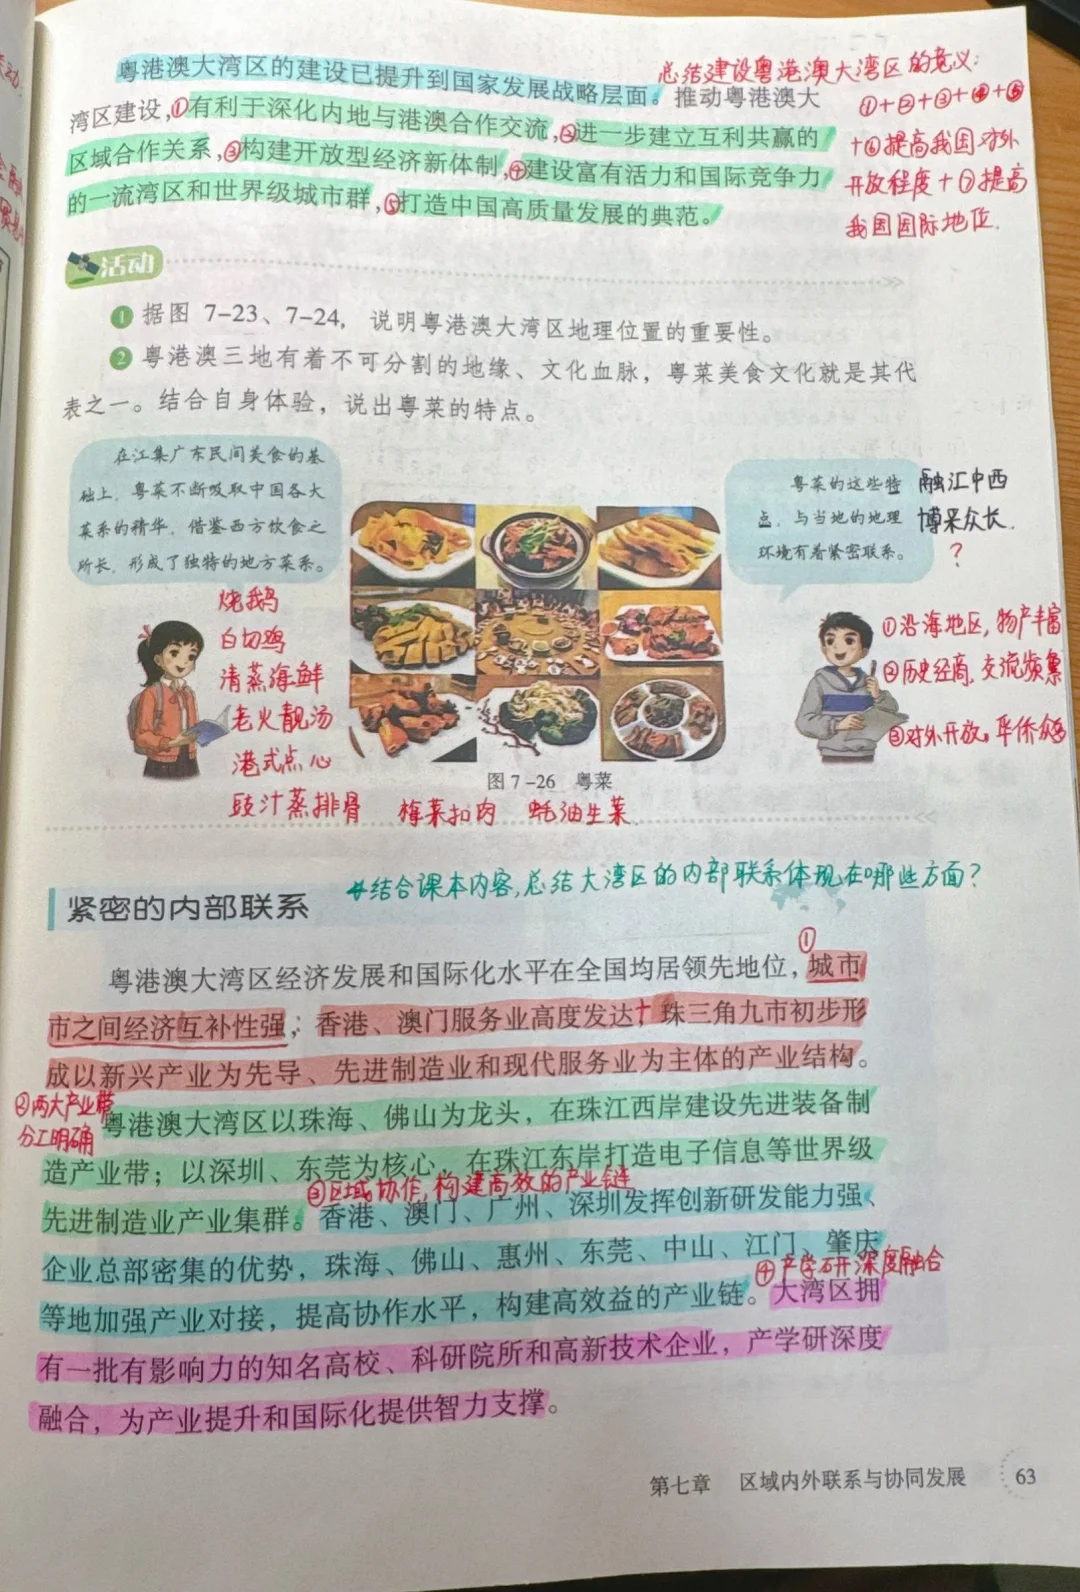 粤港澳大湾区的建设已提升到国家发展战略层面。推动粤港澳大
湾区建设,①有利于深化内地与港澳合作交流,②进一步建立互利共赢的
区域合作关系,③构建开放型经济新体制,④建设富有活力和国际竞争力
的一流湾区和世界级城市群,⑤打造中国高质量发展的典范。
总结建设粤港澳大湾区的意义:
①+②+③+④+⑤
+⑥提高我国对外
开放程度+⑦提高
我国国际地位.
活动
1 据图 7-23、7-24, 说明粤港澳大湾区地理位置的重要性。
2 粤港澳三地有着不可分割的地缘、文化血脉,粤菜美食文化就是其代
表之一。结合自身体验,说出粤菜的特点。
在汇集广东民间美食的基
础上,粤菜不断吸取中国各大
菜系的精华,借鉴西方饮食之
所长,形成了独特的地方菜系。
粤菜的这些特
点,与当地的地理
环境有着紧密联系。
融汇中西
博采众长.
?
烧鹅
白切鸡
清蒸海鲜
老火靓汤
港式点心
豉汁蒸排骨 梅菜扣肉 蚝油生菜
①沿海地区,物产丰富
②历史经商,交流频繁
③对外开放,华侨众多
图 7-26 粤菜
紧密的内部联系
*结合课本内容,总结大湾区的内部联系体现在哪些方面?
①
粤港澳大湾区经济发展和国际化水平在全国均居领先地位,城市
市之间经济互补性强;香港、澳门服务业高度发达+珠三角九市初步形
成以新兴产业为先导、先进制造业和现代服务业为主体的产业结构。
②两大产业带
分工明确
粤港澳大湾区以珠海、佛山为龙头,在珠江西岸建设先进装备制
造产业带;以深圳、东莞为核心,在珠江东岸打造电子信息等世界级
③区域协作,构建高效的产业链
先进制造业产业集群。香港、澳门、广州、深圳发挥创新研发能力强、
企业总部密集的优势,珠海、佛山、惠州、东莞、中山、江门、肇庆
④产学研深度融合
等地加强产业对接,提高协作水平,构建高效益的产业链。大湾区拥
有一批有影响力的知名高校、科研院所和高新技术企业,产学研深度
融合,为产业提升和国际化提供智力支撑。
第七章 区域内外联系与协同发展 63